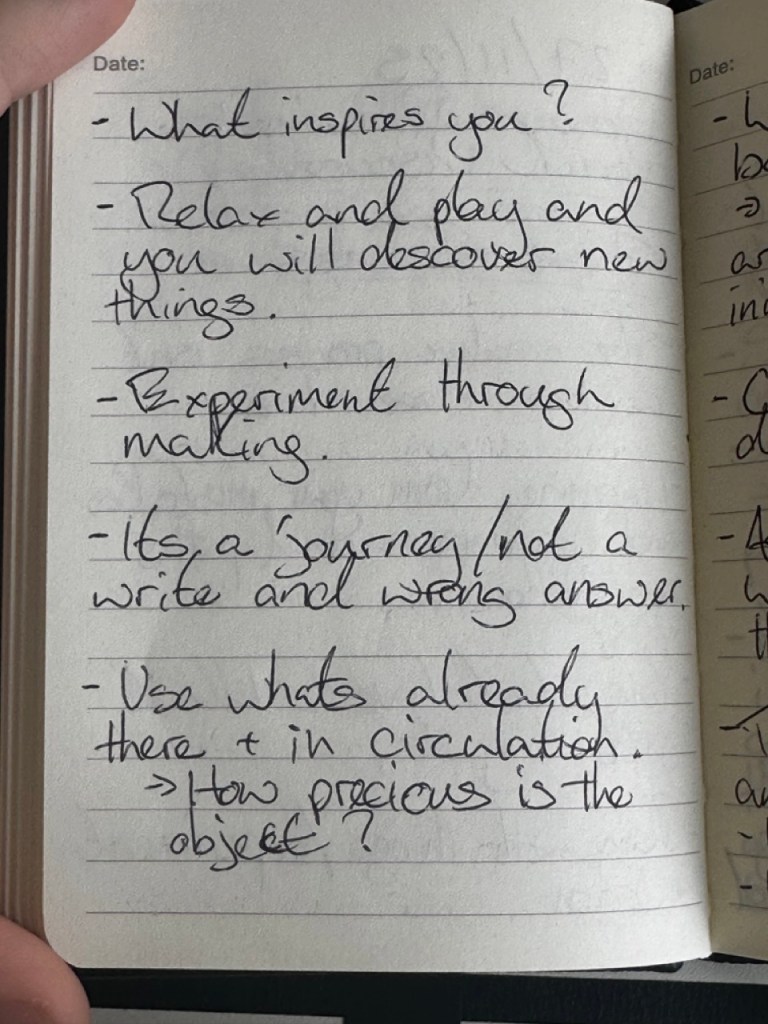 Date:
- What inspires you?
- Relax and play and
you will descover new
things.
- Experiment through
making.
- Its a journey / not a
write and wrong answer.
- Use whats already
there + in circulation.
→ How precious is the
object?
Date: